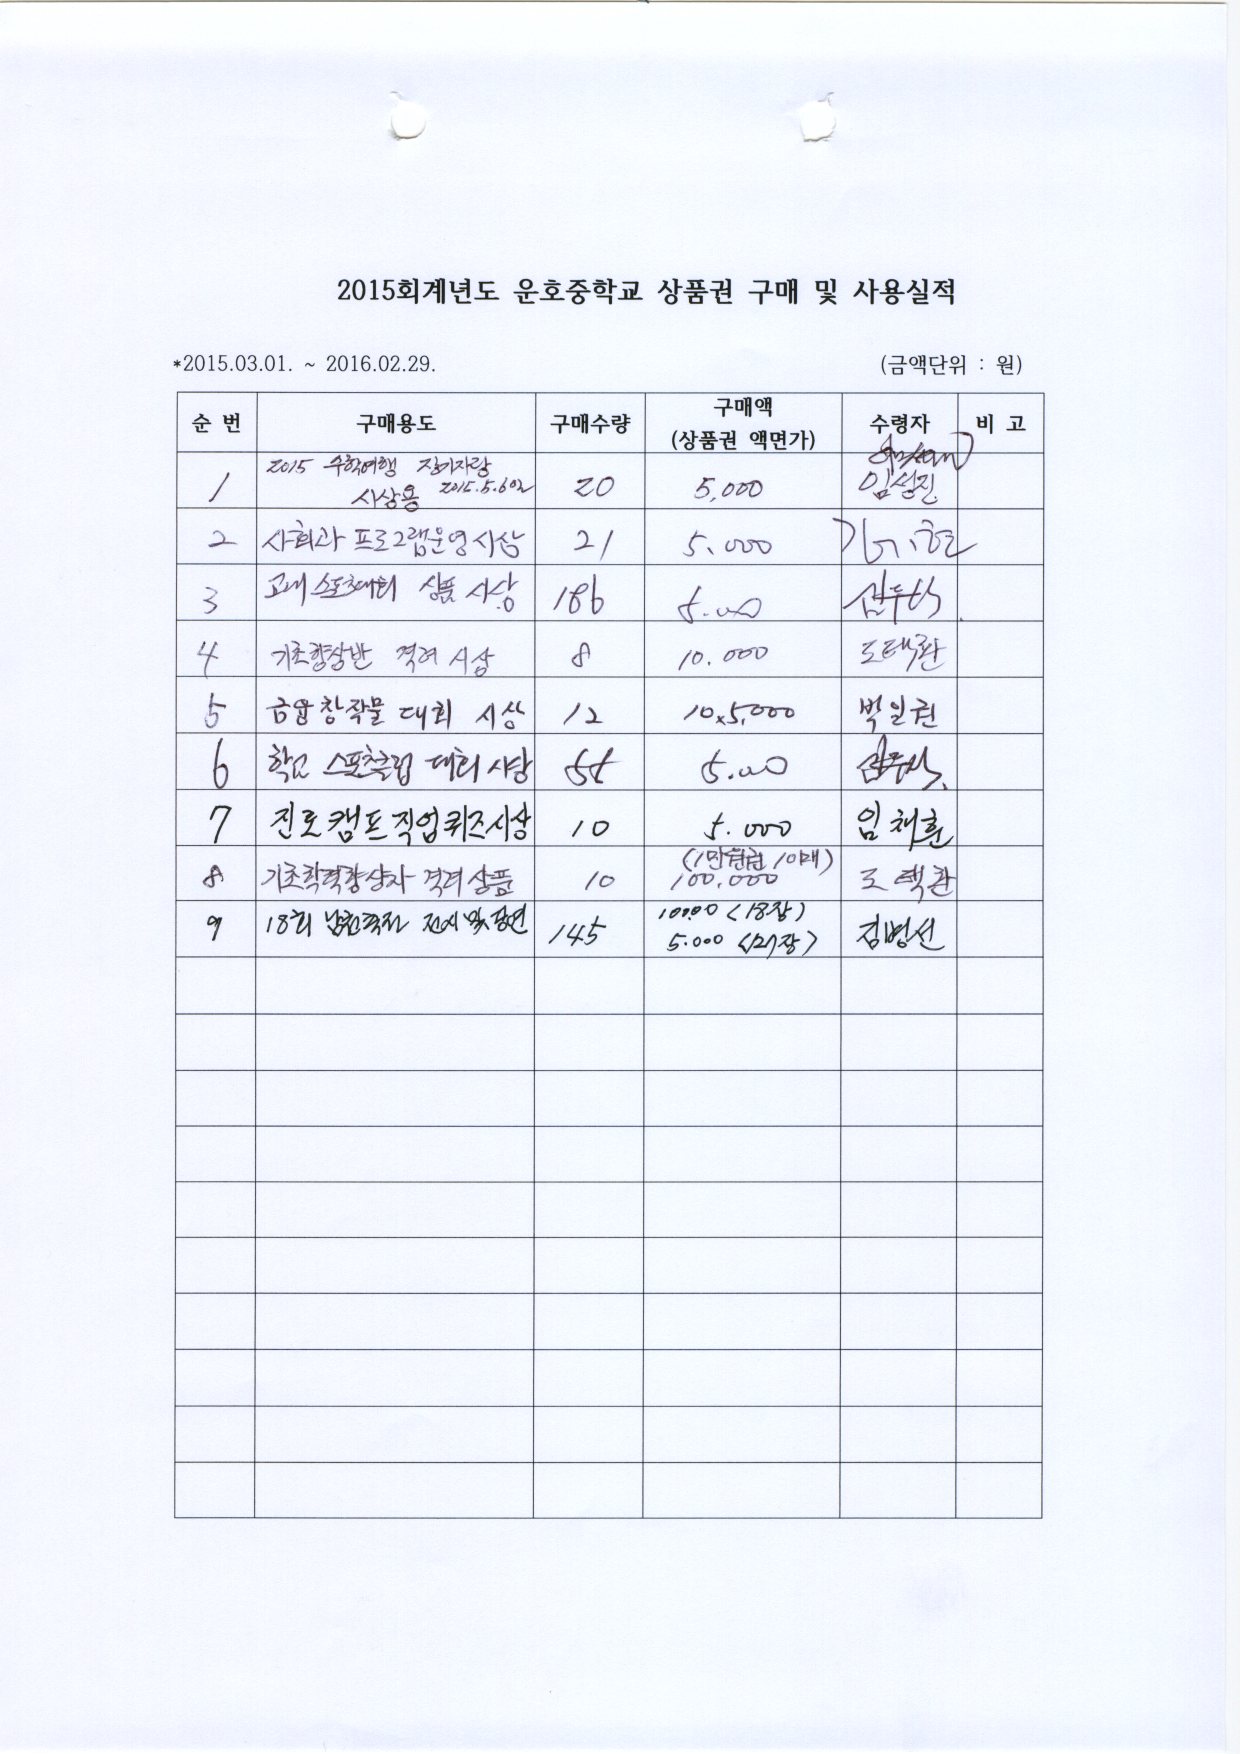 2015회계년도 운호중학교 상품권 구매 및 사용실적
*2015.03.01. ~ 2016.02.29. (금액단위 : 원)
순 번 구매용도 구매수량 구매액 (상품권 액면가) 수령자 비 고
1 2015 수학여행 장기자랑
시상용 2015.5.6 20 5,000 임성진
2 사회과 프로그램운영 시상 21 5.000
3 교내 스포츠대회 상품 시상 186 5.000
4 기초향상반 격려 시상 8 10.000 도택환
5 창작물 대회 시상 12 10x5,000 박일권
6 학교 스포츠클럽 대회 시상 55 5.000
7 진로캠프 직업퀴즈시상 10 5.000 임채훈
(1만원권 10매)
8 기초학력향상자 격려 상품 10 100,000 도택환
9 18회 전시 및 공연 145 10000 (18장)
5.000 (127장) 김병선